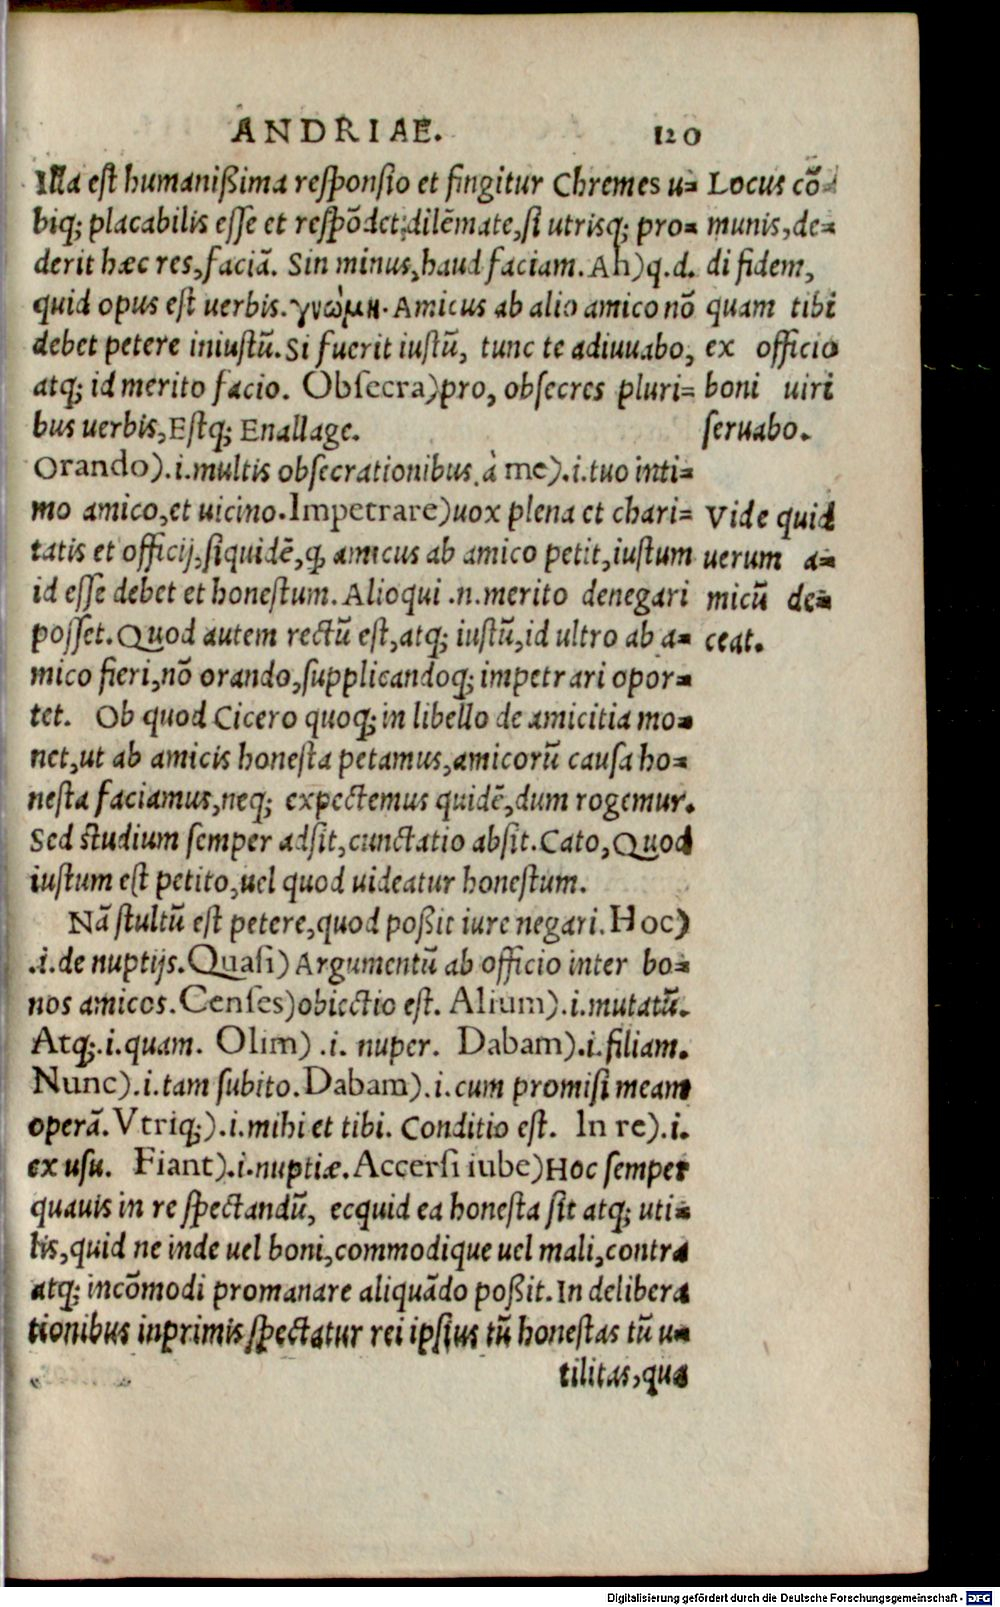 ANDRIAE. 120
Illa est humanißima responsio et fingitur Chremes u-
biq; placabilis esse et respõdet: dilẽmate, si utrisq; pro-
derit hæc res, faciã. Sin minus, haud faciam. Ah) q.d.
quid opus est uerbis. γνώμη. Amicus ab alio amico nõ
debet petere iniustũ. Si fuerit iustũ, tunc te adiuuabo,
atq; id merito facio. Obsecra) pro, obsecres pluri-
bus uerbis, Estq; Enallage.
Orando).i.multis obsecrationibus. à me).i.tuo inti-
mo amico, et uicino. Impetrare) uox plena et chari-
tatis et officij, siquidẽ, q̃ amicus ab amico petit, iustum
id esse debet et honestum. Alioqui .n. merito denegari
posset. Quod autem rectũ est, atq; iustũ, id ultro ab a-
mico fieri, nõ orando, supplicandoq; impetrari opor-
tet. Ob quod Cicero quoq; in libello de amicitia mo-
net, ut ab amicis honesta petamus, amicorũ causa ho-
nesta faciamus, neq; expectemus quidẽ, dum rogemur.
Sed studium semper adsit, cunctatio absit. Cato, Quod
iustum est petito, uel quod uideatur honestum.
Nã stultũ est petere, quod poßit iure negari. Hoc)
.i. de nuptijs. Quasi) Argumentũ ab officio inter bo-
nos amicos. Censes) obiectio est. Alium).i.mutatũ.
Atq;.i.quam. Olim) .i. nuper. Dabam).i.filiam.
Nunc).i.tam subito. Dabam).i.cum promisi meam
operã. Vtriq;).i.mihi et tibi. Conditio est. In re).i.
ex usu. Fiant).i.nuptiæ. Accersi iube) Hoc semper
quauis in re spectandũ, ecquid ea honesta sit atq; uti-
lis, quid ne inde uel boni, commodique uel mali, contra
atq; incõmodi promanare aliquãdo poßit. In delibera
tionibus inprimis spectatur rei ipsius tũ honestas tũ u-
tilitas, qua
Locus cõ-
munis, de-
di fidem,
quam tibi
ex officio
boni uiri
seruabo.
Vide quid
uerum a-
micũ de-
ceat.
Digitalisierung gefördert durch die Deutsche Forschungsgemeinschaft - DFG